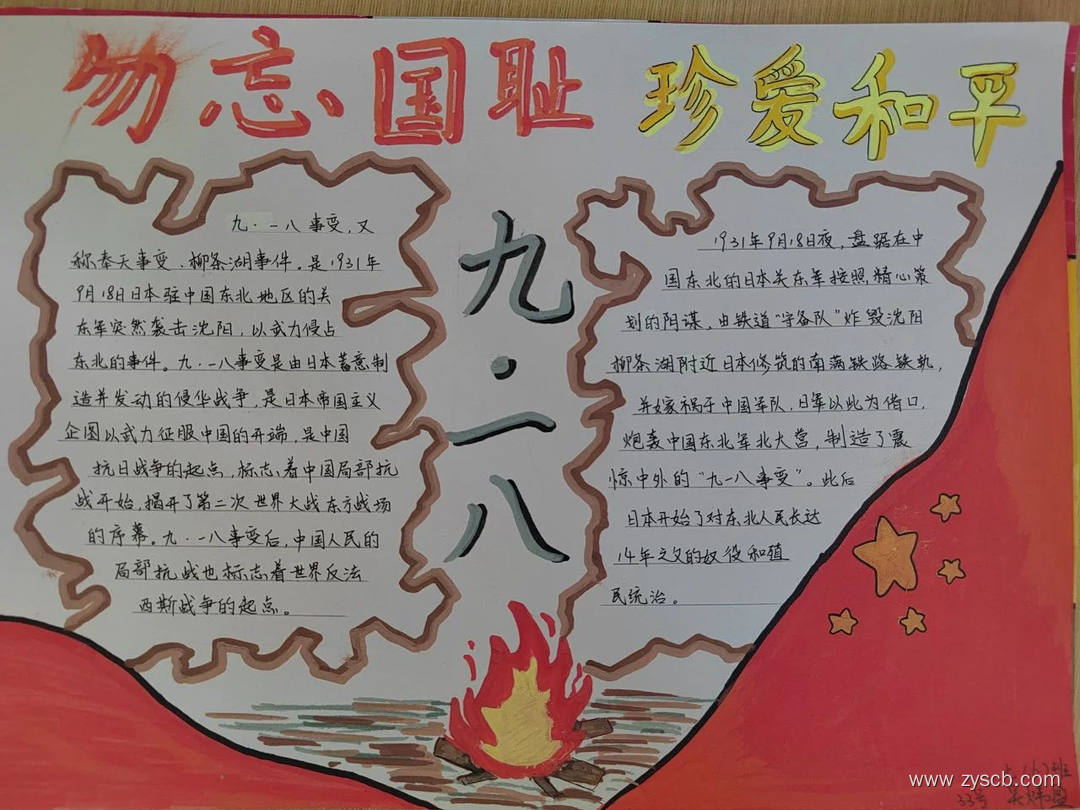 勿忘国耻 珍爱和平
九·一八事变,又
称奉天事变、柳条湖事件。是1931年
9月18日日本驻中国东北地区的关
东军突然袭击沈阳,以武力侵占
东北的事件。九·一八事变是由日本蓄意制
造并发动的侵华战争,是日本帝国主义
企图以武力征服中国的开端,是中国
抗日战争的起点,标志着中国局部抗
战开始,揭开了第二次世界大战东方战场
的序幕。九·一八事变后,中国人民的
局部抗战也标志着世界反法
西斯战争的起点。
九·一八
1931年9月18日夜,盘踞在中
国东北的日本关东军按照精心策
划的阴谋,由铁道“守备队”炸毁沈阳
柳条湖附近日本修筑的南满铁路铁轨,
并嫁祸于中国军队,日军以此为借口,
炮轰中国东北军北大营,制造了震
惊中外的“九一八事变”。此后
日本开始了对东北人民长达
14年之久的奴役和殖
民统治。
班
33号
www.zyscb.com